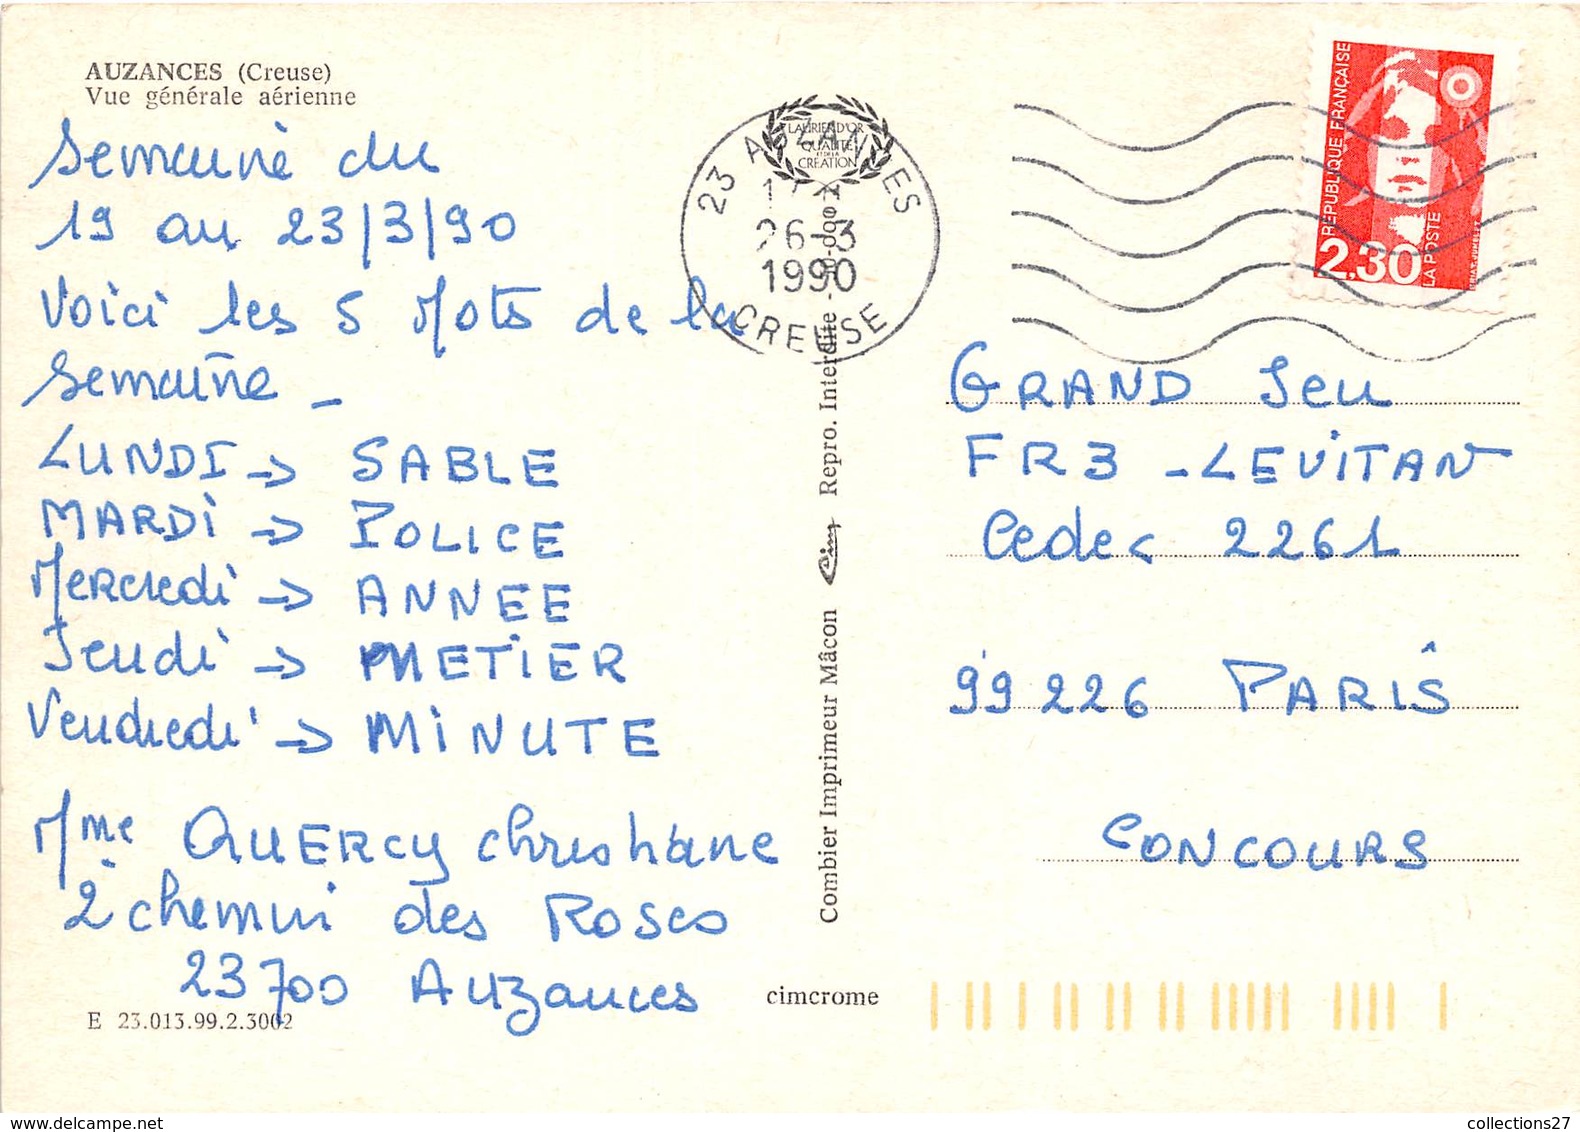 AUZANCES (Creuse)
Vue générale aérienne
Semaine du
19 au 23/3/90
Voici les 5 Mots de la
Semaine -
LUNDI → SABLE
MARDI → POLICE
Mercredi → ANNEE
Jeudi → METIER
Vendredi → MINUTE
Mme QUERCY Christiane
2 chemin des Roses
23700 Auzances
E 23.013.99.2.3002
LAURIER D'OR
QUALITÉ
ET DE LA
CRÉATION
23 AUZANCES
26-3
1990
CREUSE
Combier Imprimeur Mâcon Cim Repro. Interdite
cimcrome
RÉPUBLIQUE FRANÇAISE
2,30
LA POSTE
GRAND Jeu
FR3 - LEVITAN
Cedex 2261
99226 PARIS
CONCOURS
collections27